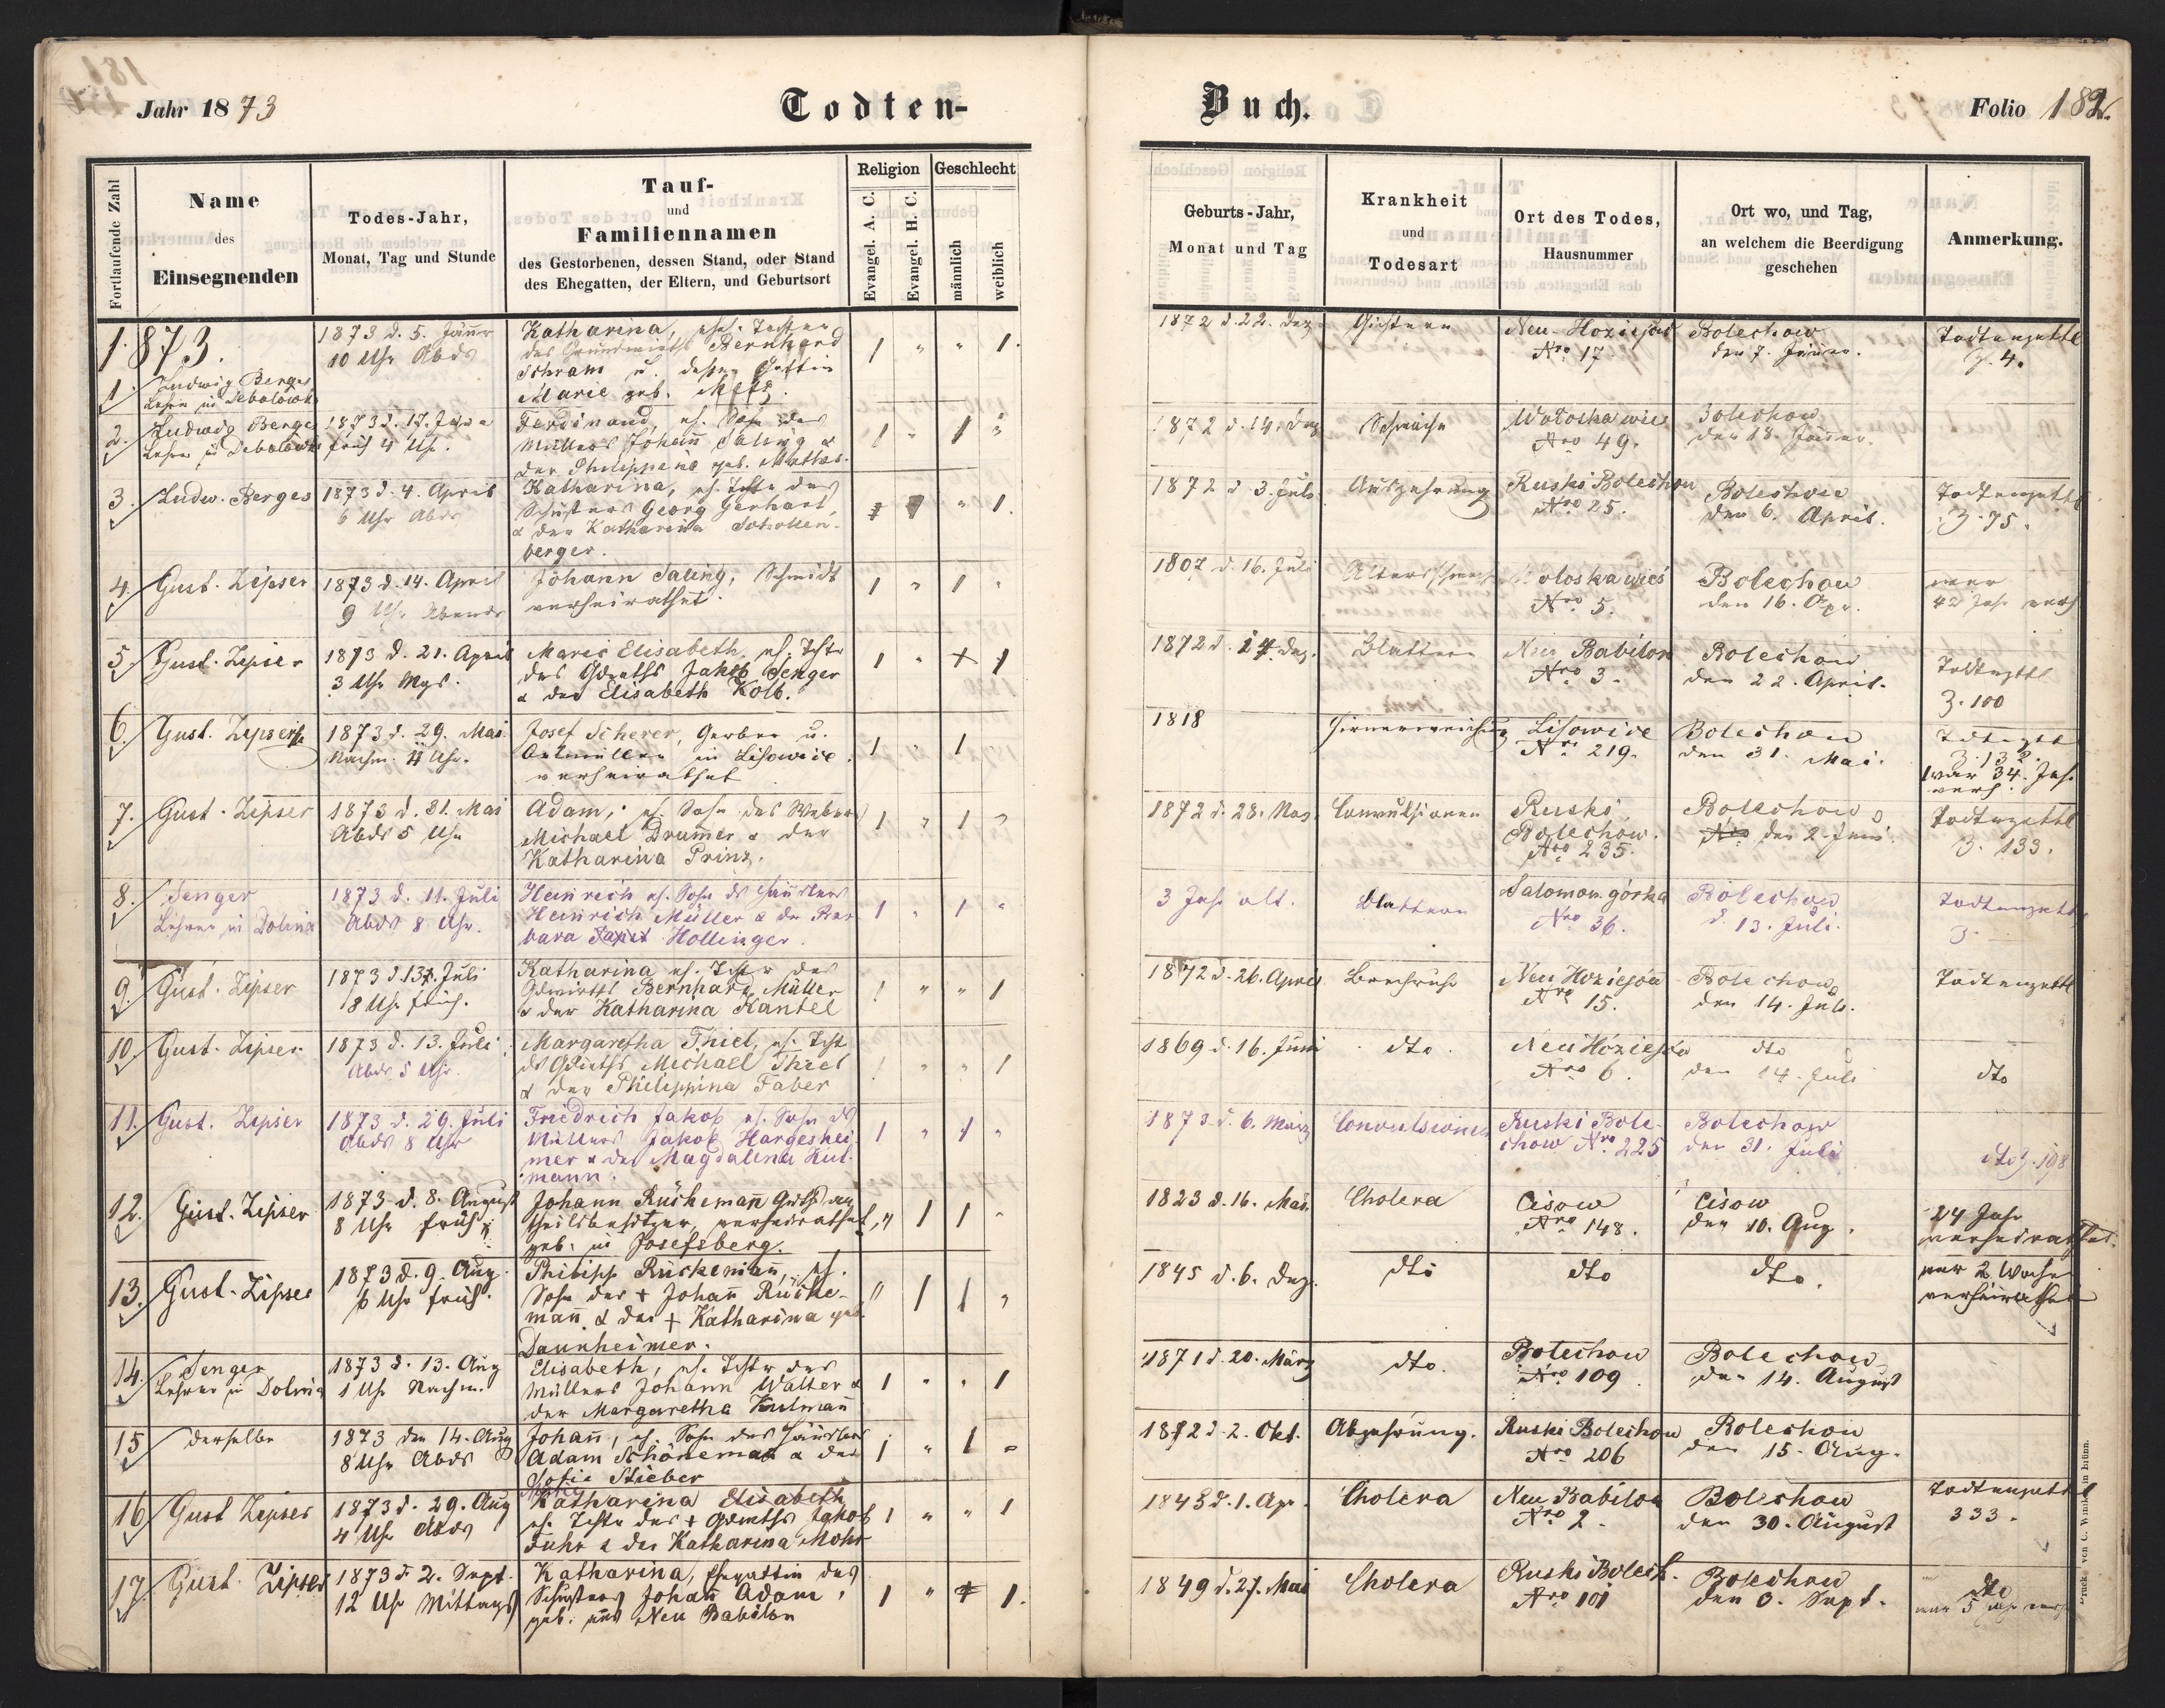 Jahr 1873
Todten-
Fortlaufende Zahl
Name
des
Einsegnenden
Todes-Jahr,
Monat, Tag und Stunde
Tauf-
und
Familiennamen
des Gestorbenen, dessen Stand, oder Stand
des Ehegatten, der Eltern, und Geburtsort
Religion
Evangel. A. C.
Evangel. H. C.
Geschlecht
männlich
weiblich
1873.
1.
Ludwig Berges
Lehrer in Debolowka
1873 d. 5. Jänner
10 Uhr Abds
Katharina, ehel. Tochter
des Grundwirths Bernhard
Schram u. dessen Gattin
Marie geb. Metz.
1 " " 1.
2.
Ludwig Berges
Lehrer in Debolowka
1873 d. 17. Jänner
früh 4 Uhr.
Ferdinand, eh. Sohn des
Müllers Johann Saling &
der Philippine geb. Mathes.
1 " 1 "
3.
Ludw. Berges
1873 d. 4. April
6 Uhr Abds
Katharina, eh. Tochter des
Schusters Georg Gerhart,
& der Katharina Schollen-
berger.
" 1.
4.
Gust. Zipser
1873 d. 14. April
9 Uhr Abends
Johann Saling, Schmidt
verheirathet.
1 " 1 "
5.
Gust. Zipser
1873 d. 21. April
3 Uhr Mgs.
Marie Elisabeth, eh. Tchtr
des Gdwirths Jakob Senger
& der Elisabeth Kolb.
1 " 1
6.
Gust. Zipser
1873 d. 29. Mai.
Nachm. 4 Uhr.
Josef Scherer, Gerber u.
Oelmüller in Lisowice.
verheirathet
1 " 1
7.
Gust. Zipser
1873 d. 31. Mai
Abds 5 Uhr
Adam, eh. Sohn des Webers
Michael Drumer & der
Katharina Prinz.
1 " 1 "
8.
Senger
Lehrer in Dolina
1873 d. 11. Juli
Abds 8 Uhr.
Heinrich eh. Sohn ds Häuslers
Heinrich Müller & der Bar-
bara Hollinger.
1 " 1 "
9.
Gust. Zipser
1873 d. 13. Juli
8 Uhr früh.
Katharina eh. Tchtr des
Gdwirths Bernhard Müller
& der Katharina Kantel
1 " " 1
10.
Gust. Zipser
1873 d. 13. Juli
Abds 5 Uhr.
Margaretha Thiel, eh. Tcht
ds Gdwirths Michael Thiel
& der Philippina Faber
1 " " 1
11.
Gust. Zipser
1873 d. 29. Juli
Abds 8 Uhr
Friedrich Jakob eh. Sohn ds
Müllers Jakob Hargeshei-
mer & der Magdalena Kul-
mann.
1 " 1 "
12.
Gust. Zipser
1873 d. 8. August
8 Uhr früh
Johann Rückemann
theilbesitzer, verheirathet,
geb. in Josefsberg.
" 1 1 "
13.
Gust. Zipser
1873 d. 9. Aug.
6 Uhr früh.
Philipp Rückemann, eh.
Sohn des + Johann Rücke-
mann & der + Katharina geb.
Dannheimer.
" 1 1 "
14.
Senger
Lehrer in Dolina
1873 d. 13. Aug
1 Uhr Nachm.
Elisabeth, eh. Tchtr des
Müllers Johann Walter &
der Margaretha Kulmann
1 " " 1
15
derselbe
1873 den 14. Aug
8 Uhr Abds
Johann, eh. Sohn des Häuslers
Adam Schöneman & der
Sofie Stieber
1 " 1 "
16
Gust Zipser
1873 d. 29. Aug
4 Uhr Abds
Katharina Elisabeth
eh. Tchtr des + Gdwirths Jakob
Fuhr & der Katharina Mohr
1 " " 1
17.
Gust. Zipser
1873 d. 2. Sept.
12 Uhr Mittags
Katharina, Ehegattin des
Schusters Johann Adam,
geb. aus Neu Babilon
1 " 1.
Buch.
Folio 182.
Geburts-Jahr,
Monat und Tag
Krankheit
und
Todesart
Ort des Todes,
Hausnummer
Ort wo, und Tag,
an welchem die Beerdigung
geschehen
Anmerkung.
1872 d. 22. Dez.
Gichtern
Neu-Hoziejow
Nro 17
Bolechow
den 7. Jänner.
Todtenzettl
Z. 4.
1872 d. 14. Dez
Schwäche
Wołoska wies
Nro 49.
Bolechow
den 18. Jänner.
1872 d 3. Juli
Auszehrung
Ruski Bolechow
Nro 25.
Bolechow
den 6. April.
Todtenzettl
Z. 75.
1807 d. 16. Juli
Altersschwäche
Woloska wieś
Nro 5.
Bolechow
den 16. Apr.
war
42 Jahr verh
1872 d. 14. Dez.
Blattern
Neu Babilon
Nro 3.
Bolechow
den 22. April.
Todtenzttl
Z. 100
1818
Lisowice
Nro 219.
Bolechow
den 31. Mai.
Z. 132.
war 34. Jahr
verh.
1872 d. 28. Nov
Convulsionen
Ruski
Bolechow.
Nro 235.
Bolechow
den 2. Juni.
Todtenzettl
Z. 133.
3 Jahr alt.
Blattern
Salomon górka
Nro 36.
Bolechow
d. 13. Juli.
Todtenzettl
Z.
1872 d. 26. April
Brechruhr
Neu Hoziejow
Nro 15.
Bolechow
den 14. Juli.
Todtenzettl
1869 d. 16. Juni
dto.
Neu Hoziejow
Nro 6.
dto
den 14. Juli
dto
1873 d. 6. März
Convulsionen
Ruski Bole-
chow Nro 225
Bolechow
den 31. Juli
dto Z. 198
1823 d. 16. Mai.
Cholera
Cisow
Nro 148.
Cisow
den 10. Aug.
24 Jahr
verheirathet.
1845 d. 6. Dez.
dto
dto
dto.
war 2 Woche
verheirathet
1871 d. 20. März
dto.
Bolechow
Nro 109.
Bolechow
den 14. August
1872 d. 2. Okt.
Abzehrung.
Ruski Bolechow
Nro 206
Bolechow
den 15. Aug.
1843 d. 1. Apr.
Cholera
Neu Babilon
Nro 2.
Bolechow
den 30. August
Todtenzettl
333.
1849 d. 27. Mai
Cholera
Ruski Bolech.
Nro 101
Bolechow
den 3. Sept.
dto
war 5 Jahr verh
Druck von C. Winiker in Brünn.